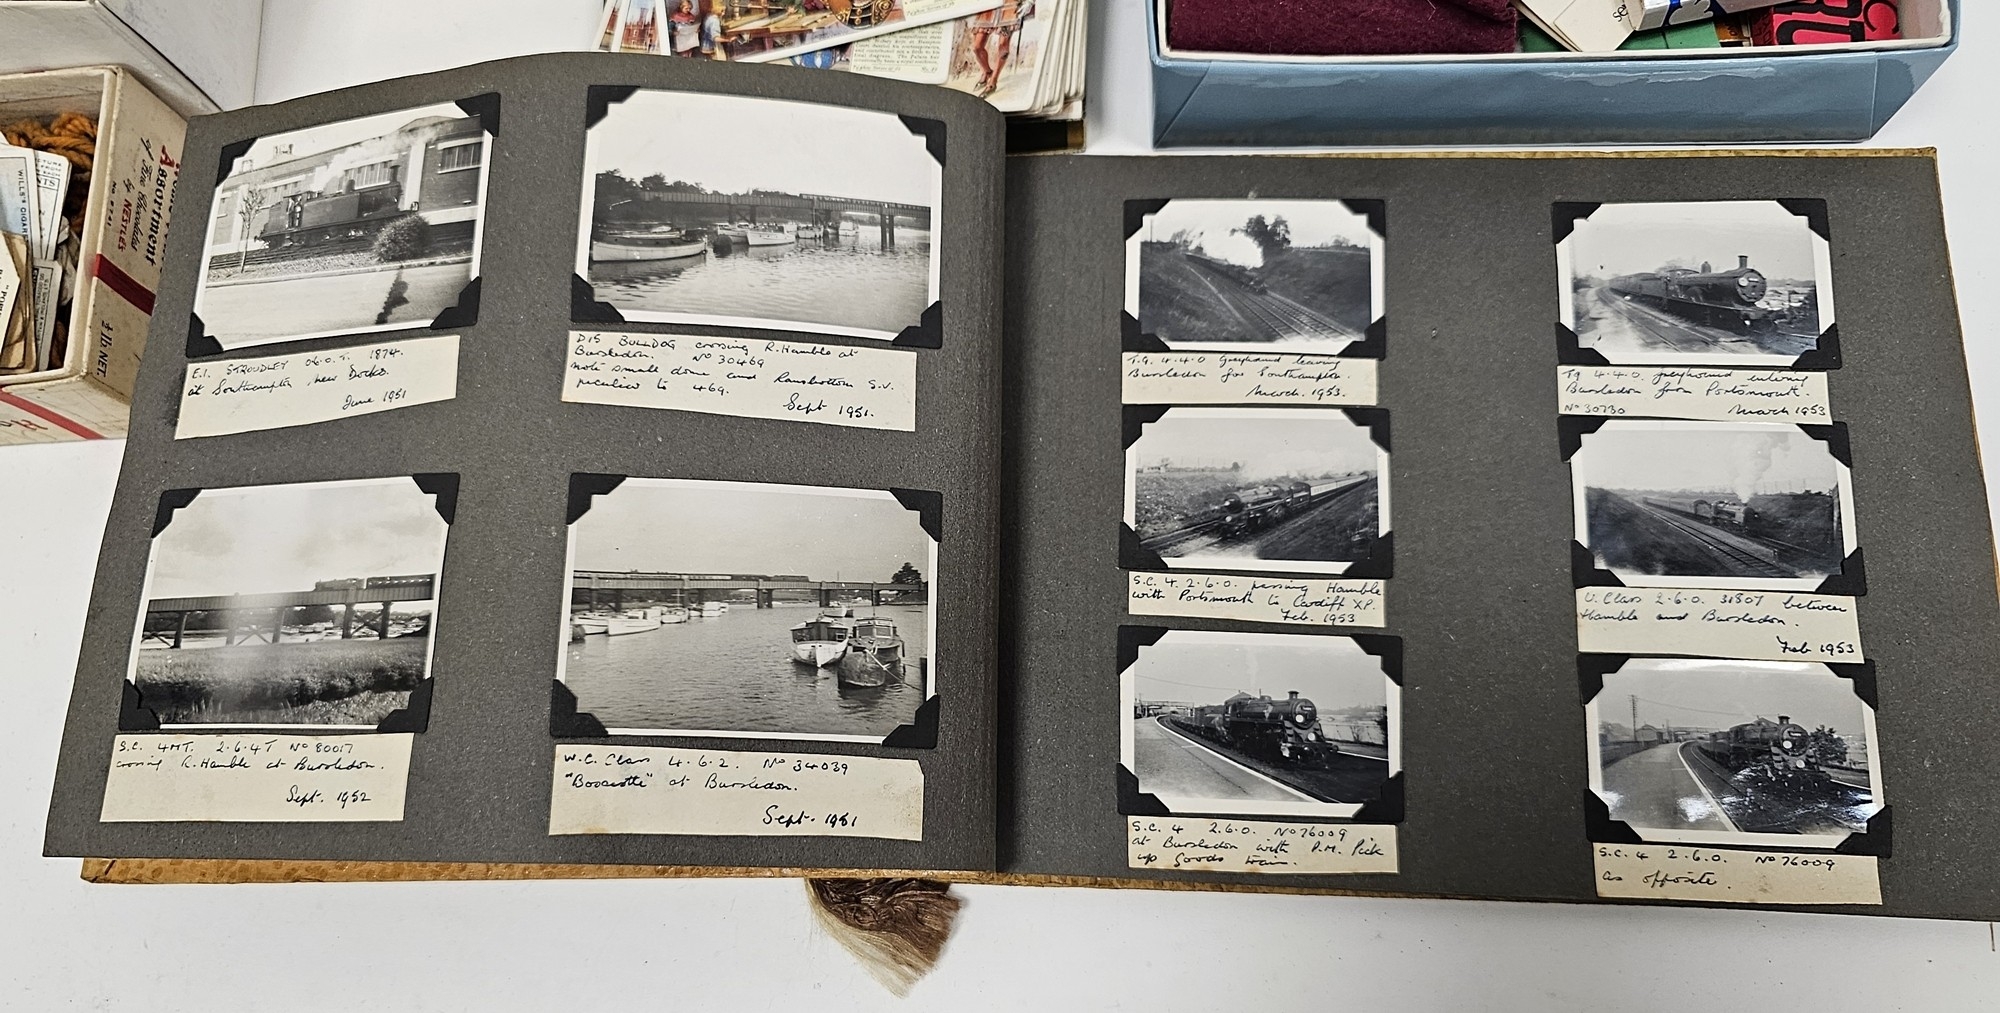 Assortment
of Fine Chocolates
by NESTLÉS
½ lb NET.
WILLS'S CIGAR
E.1. STROUDLEY 0.6.0.T. 1874.
at Southampton New Docks.
June 1951
D15 BULLDOG crossing R. Hamble at
Bursledon. No 30469
note small dome and Ramsbottom S.V.
peculiar to 469.
Sept 1951.
S.C. 4MT. 2.6.4T No 80017
crossing R. Hamble at Bursledon.
Sept. 1952
W.C. Class 4.6.2. No 34039
"Boscastle" at Bursledon.
Sept. 1951
T.9. 4.4.0 Greyhound leaving
Bursledon for Southampton.
March. 1953.
T9 4.4.0. greyhound entering
Bursledon from Portsmouth.
No 30730 March 1953
S.C. 4. 2.6.0. passing Hamble
with Portsmouth to Cardiff XP.
Feb. 1953
U. Class 2.6.0. 31807 between
Hamble and Bursledon.
Feb 1953
S.C. 4 2.6.0. No 76009
at Bursledon with P.M. Pick
up Goods train.
S.C. 4 2.6.0. No 76009
as opposite.